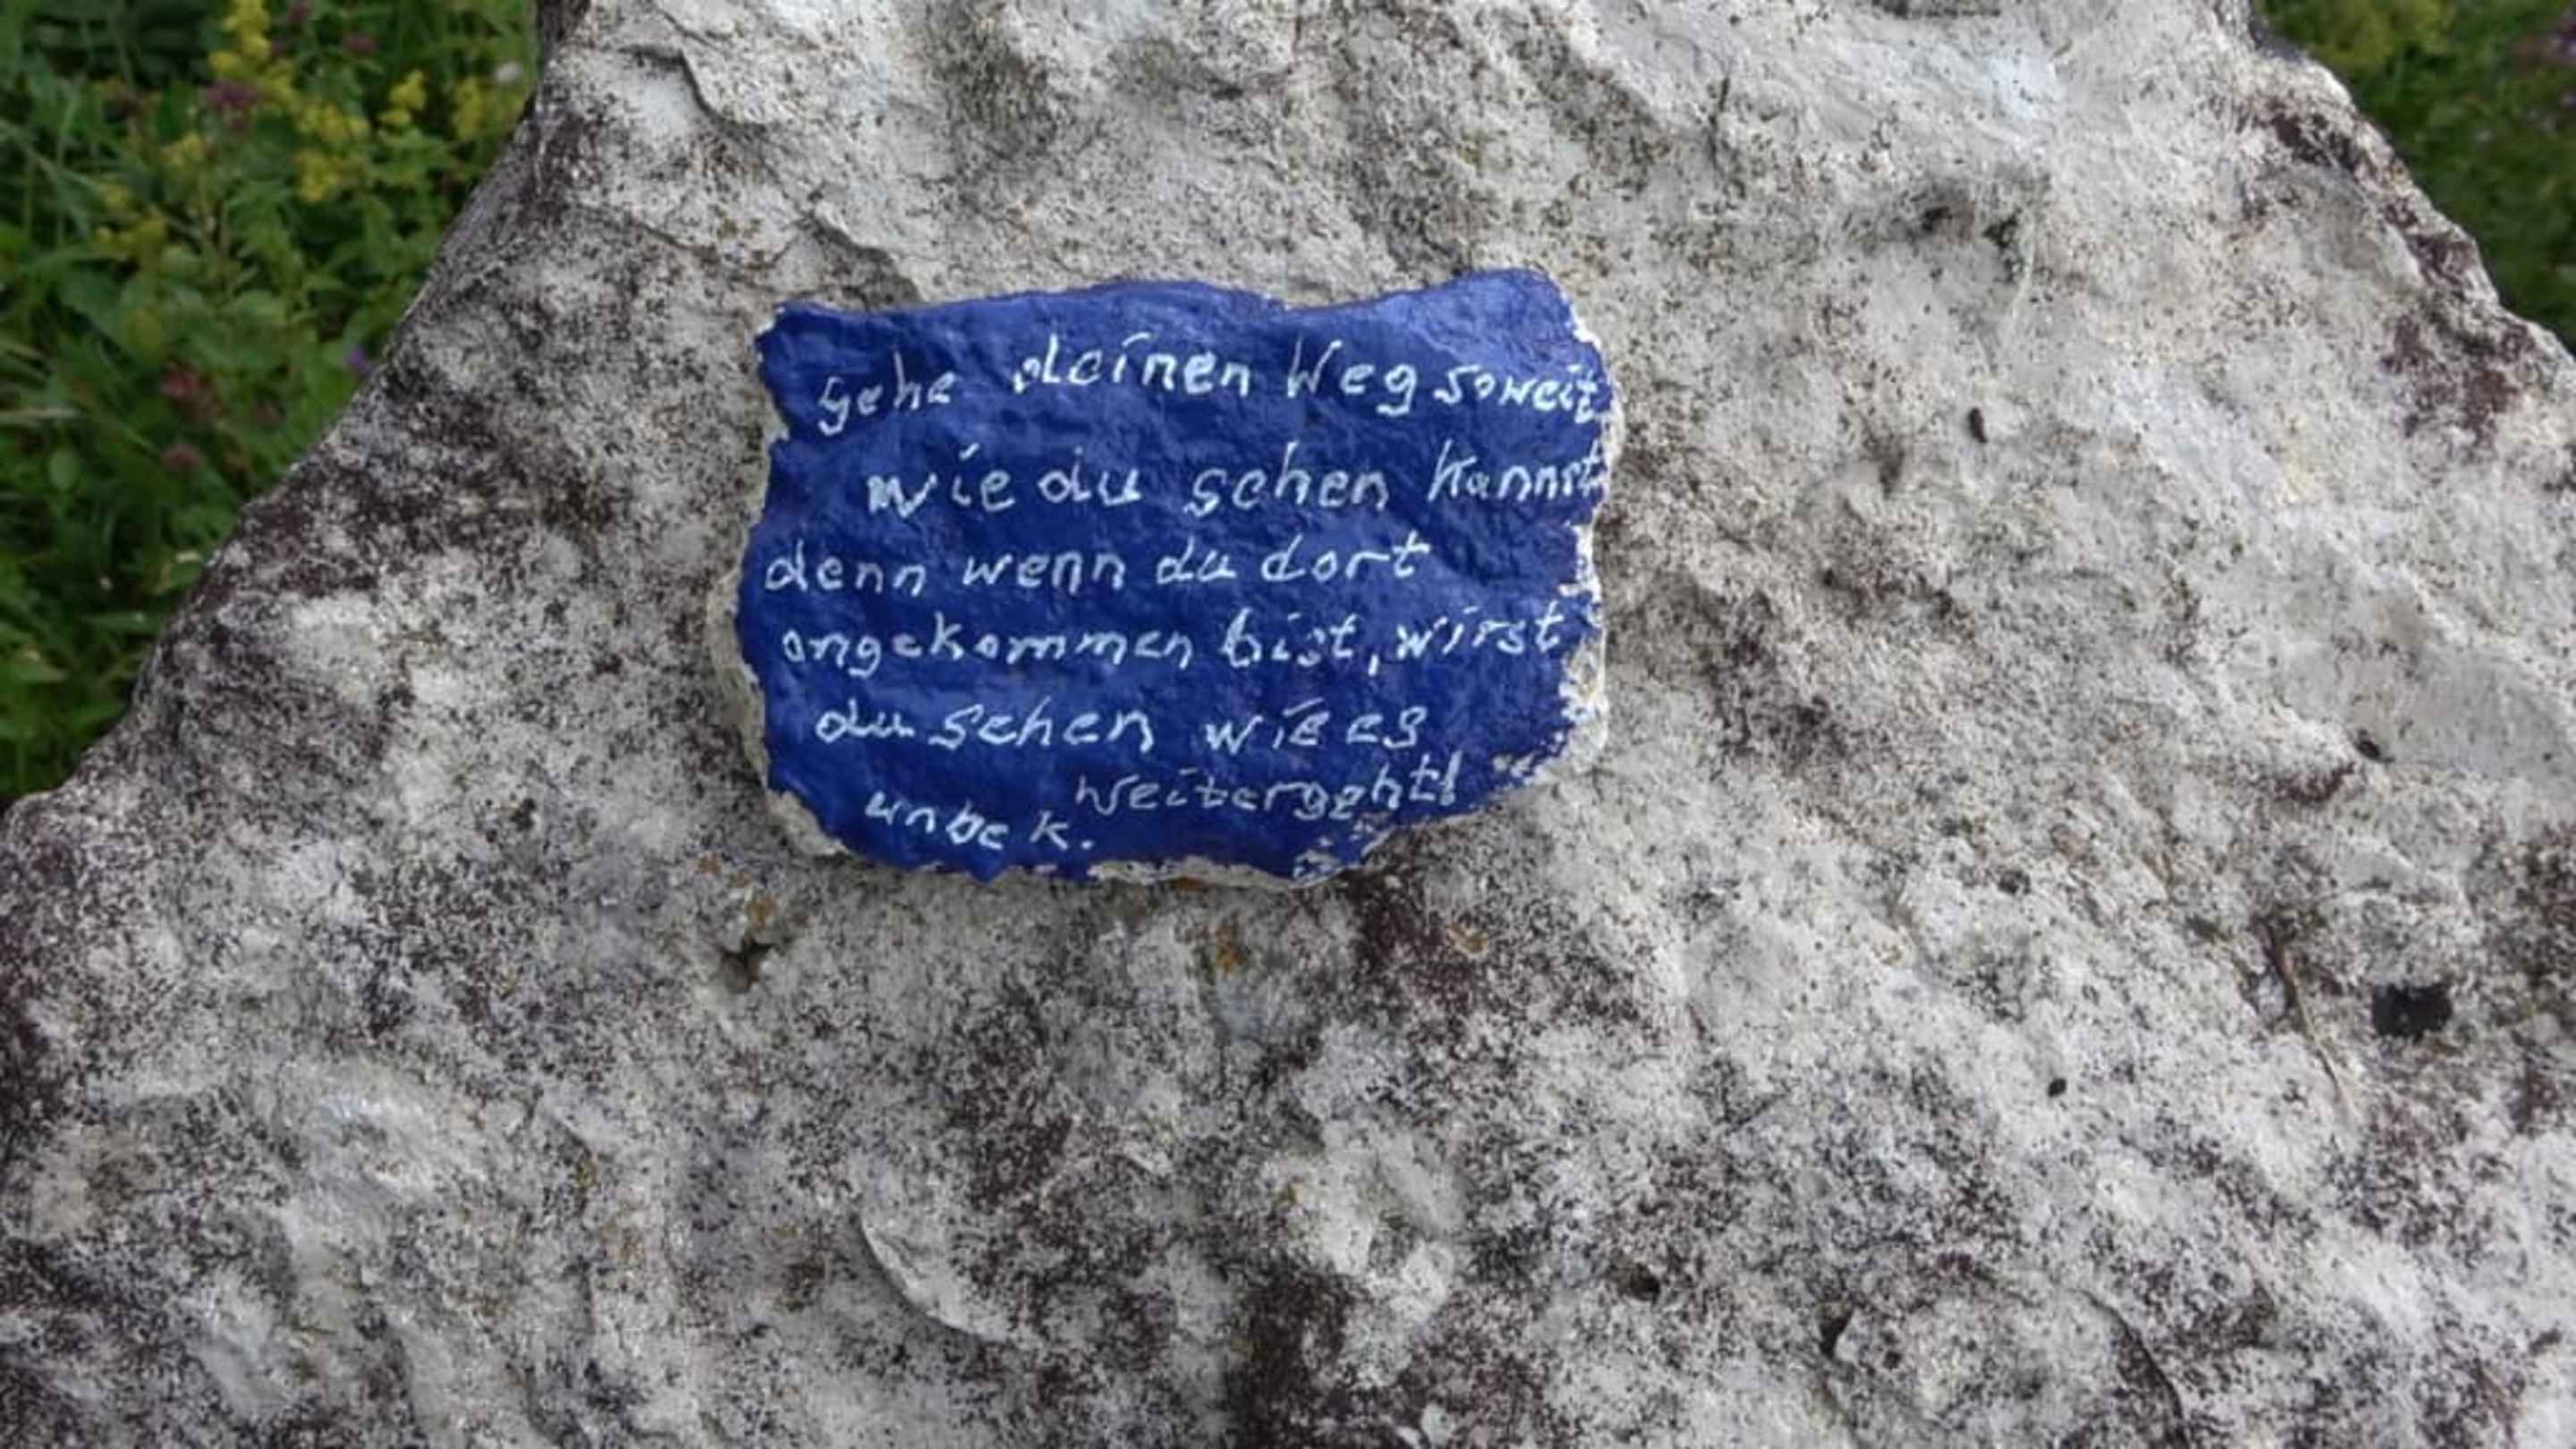 gehe deinen Weg soweit
wie du sehen kannst
denn wenn du dort
angekommen bist, wirst
du sehen wie es
weitergeht!
unbek.